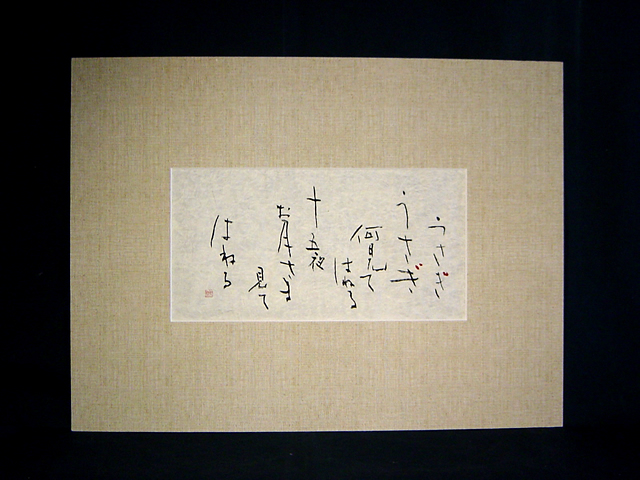 うさぎ
うさぎ
何見て
はねる
十五夜
お月さま
見て
はねる